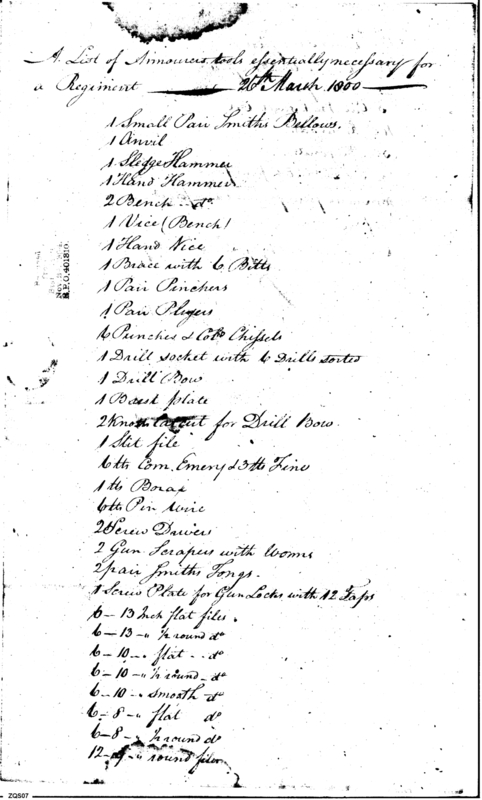 A List of Armourers tools essentially necessary for
a Regiment — 26th March 1800 —
1 Small Pair Smiths Bellows.
1 Anvil
1 Sledge Hammer
1 Hand Hammer
2 Bench do
1 Vice (Bench)
1 Hand Vice
1 Brace with 6 Bitts
1 Pair Pinchers
1 Pair Plyers
6 Punches & Cold Chissels
1 Drill socket with 6 Drills sorted
1 Drill Bow
1 Brest plate
2 for Drill Bow.
1 Slit file
6 lb Com. Emery & 3 lb Fine
1 lb Borax
6 lb Pin wire
2 Screw Drivers
2 Gun Scrapers with Worms
2 pair Smiths Tongs.
1 Screw Plate for Gun Locks with 12 Taps
6 – 13 Inch flat files.
6 – 13 – " ½ round do
6 – 10 – " flat – do
6 – 10 – " ½ round – do
6 – 10 – " smooth do
6 – 8 – " flat do
6 – 8 – " ½ round do
12 – " round files
R.P.O. 401810
ZQS07